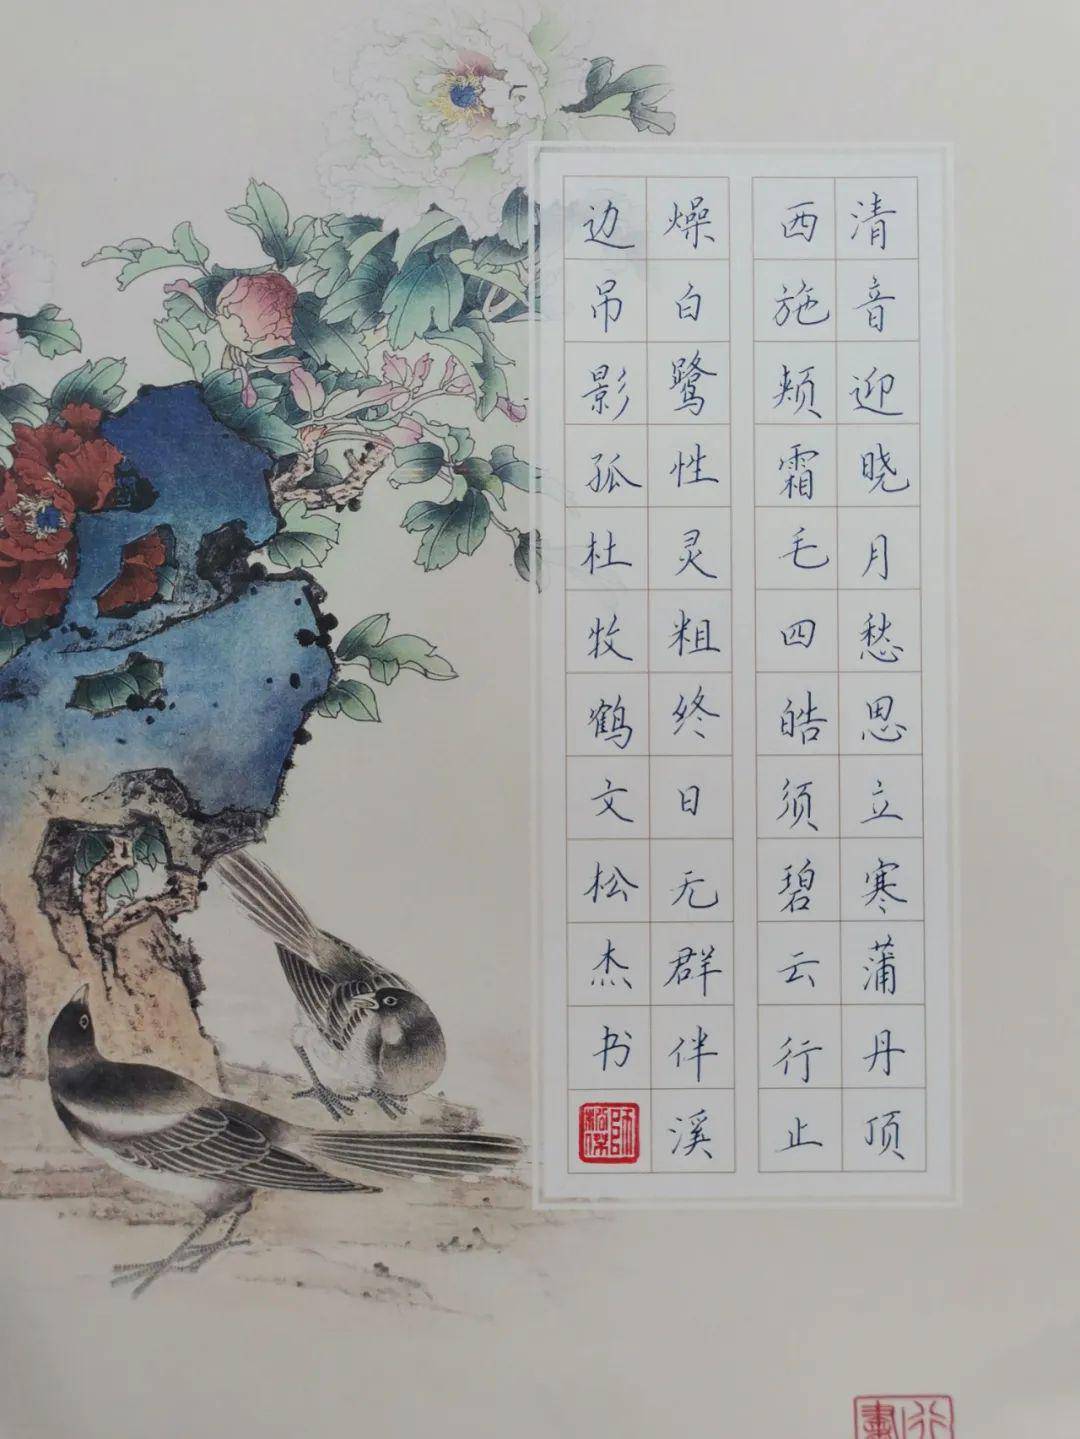 清音迎晓月愁思立寒蒲丹顶
西施颊霜毛四皓须碧云行止
燥白鹭性灵粗终日无群伴溪
边吊影孤杜牧鹤文松杰书